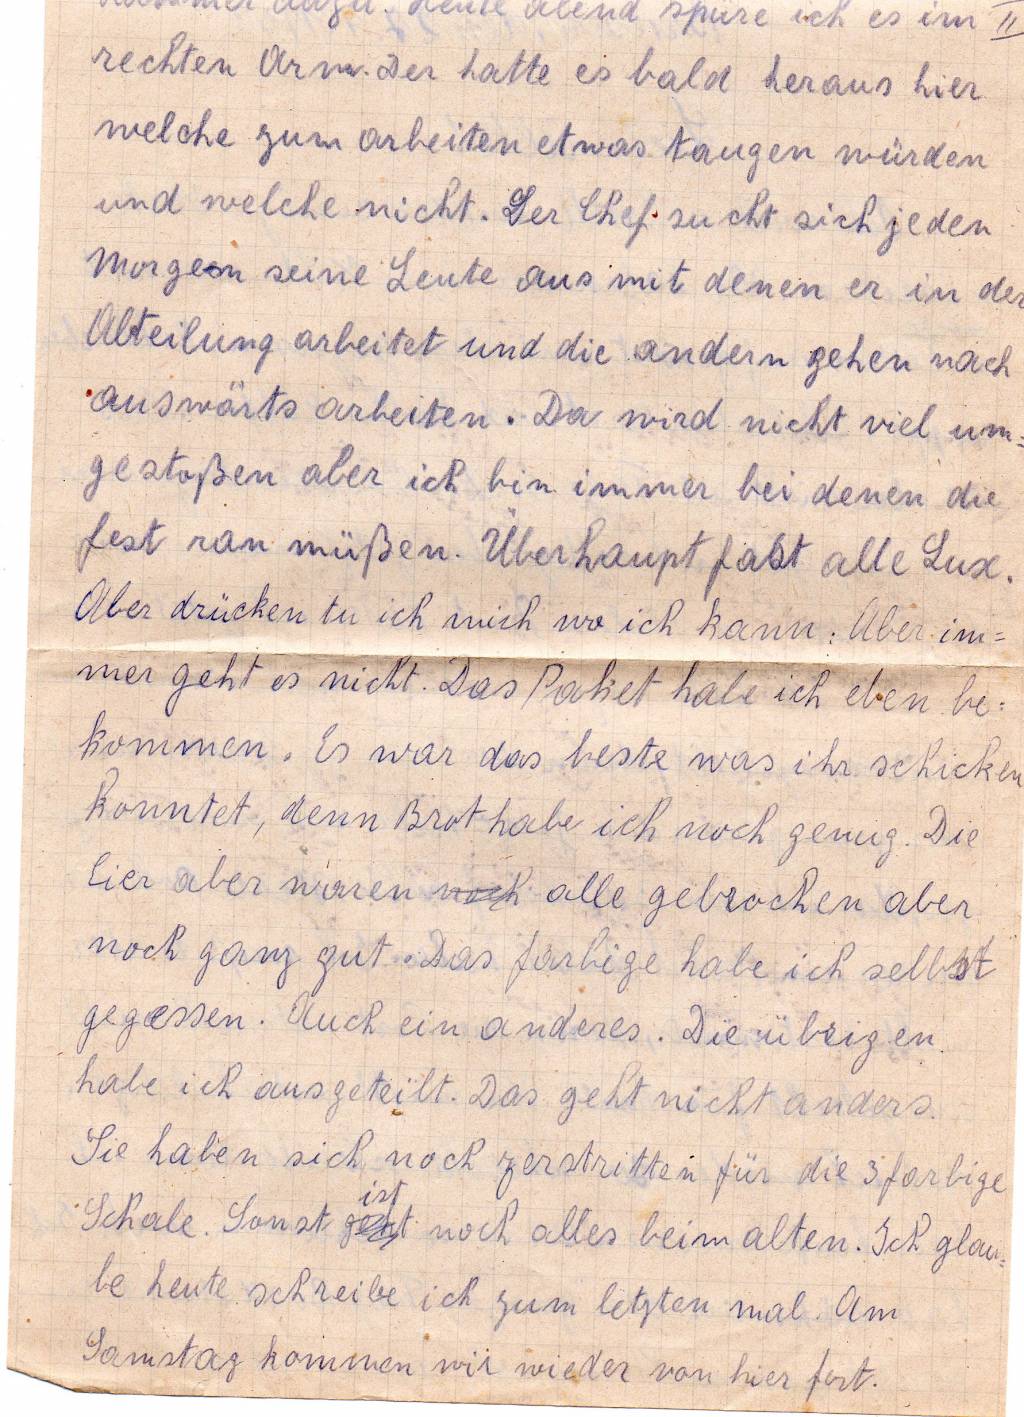 dazu. Heute abend spüre ich es im II
rechten Arm. Der hatte es bald heraus hier
welche zum arbeiten etwas taugen würden
und welche nicht. Der Chef sucht sich jeden
Morgen seine Leute aus mit denen er in der
Abteilung arbeitet und die andern gehen nach
auswärts arbeiten. Da wird nicht viel um=
gestoßen aber ich bin immer bei denen die
fest ran müßen. Überhaupt fast alle Lux.
Aber drücken tu ich mich wo ich kann. Aber im=
mer geht es nicht. Das Paket habe ich eben be=
kommen. Es war das beste was ihr schicken
konntet, denn Brot habe ich noch genug. Die
Eier aber waren noch alle gebrochen aber
noch ganz gut. Das farbige habe ich selbst
gegessen. Auch ein anderes. Die übrigen
habe ich ausgeteilt. Das geht nicht anders.
Sie haben sich noch zerstritten für die 3 farbige
Schale. Sonst ist noch alles beim alten. Ich glau=
be heute schreibe ich zum letzten mal. Am
Samstag kommen wir wieder von hier fort.